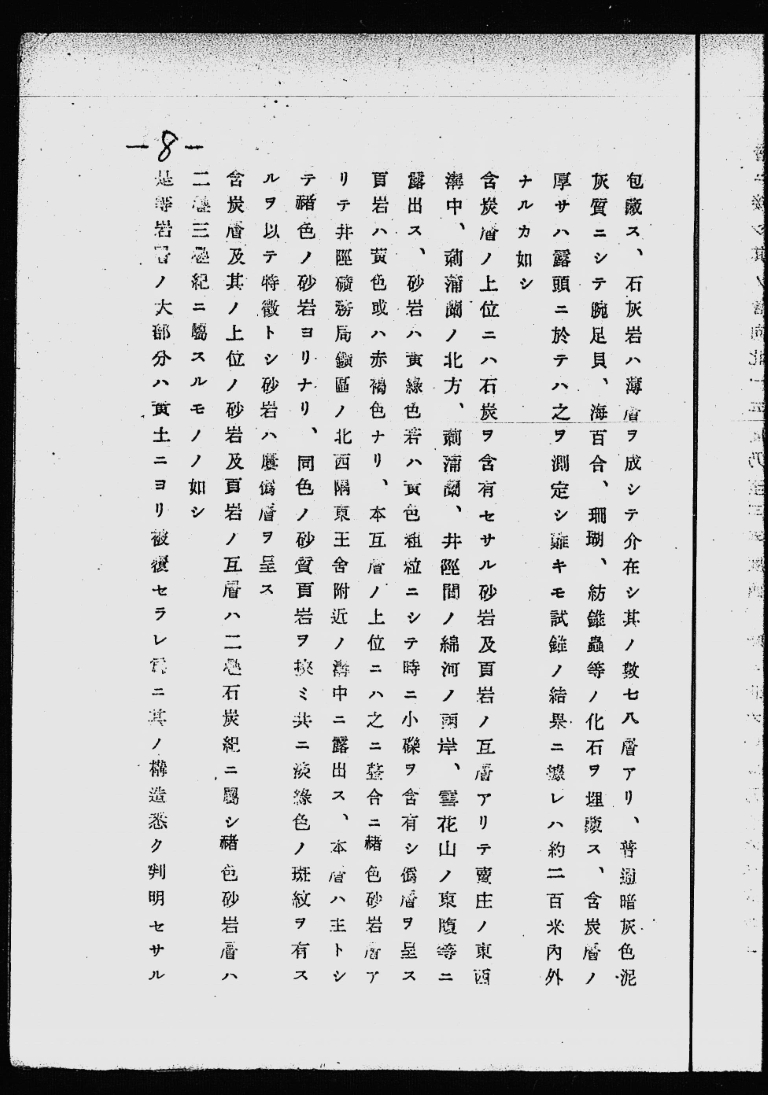 -8-
包藏ス、石灰岩ハ薄層ヲ成シテ介在シ其ノ數七八層アリ、普通暗灰色泥
灰質ニシテ腕足貝、海百合、珊瑚、紡錘蟲等ノ化石ヲ埋藏ス、含炭層ノ
厚サハ露頭ニ於テハ之ヲ測定シ難キモ試錐ノ結果ニ據レハ約二百米內外
ナルカ如シ
含炭層ノ上位ニハ石炭ヲ含有セサル砂岩及頁岩ノ互層アリテ賈庄ノ東西
溝中、荊蒲蘭ノ北方、荊蒲蘭、井陘間ノ綿河ノ兩岸、雪花山ノ東腹等ニ
露出ス、砂岩ハ黃綠色若ハ黃色粗粒ニシテ時ニ小礫ヲ含有シ僞層ヲ呈ス
頁岩ハ黃色或ハ赤褐色ナリ、本互層ノ上位ニハ之ニ整合ニ赭色砂岩層ア
リテ井陘礦務局鑛區ノ北西隅東王舍附近ノ溝中ニ露出ス、本層ハ主トシ
テ赭色ノ砂岩ヨリナリ、同色ノ砂質頁岩ヲ挾ミ共ニ淡綠色ノ斑紋ヲ有ス
ルヲ以テ特徵トシ砂岩ハ屢僞層ヲ呈ス
含炭層及其ノ上位ノ砂岩及頁岩ノ互層ハ二疊石炭紀ニ屬シ赭色砂岩層ハ
二疊三疊紀ニ屬スルモノノ如シ
是等岩層ノ大部分ハ黃土ニヨリ被覆セラレ爲ニ其ノ構造悉ク判明セサル